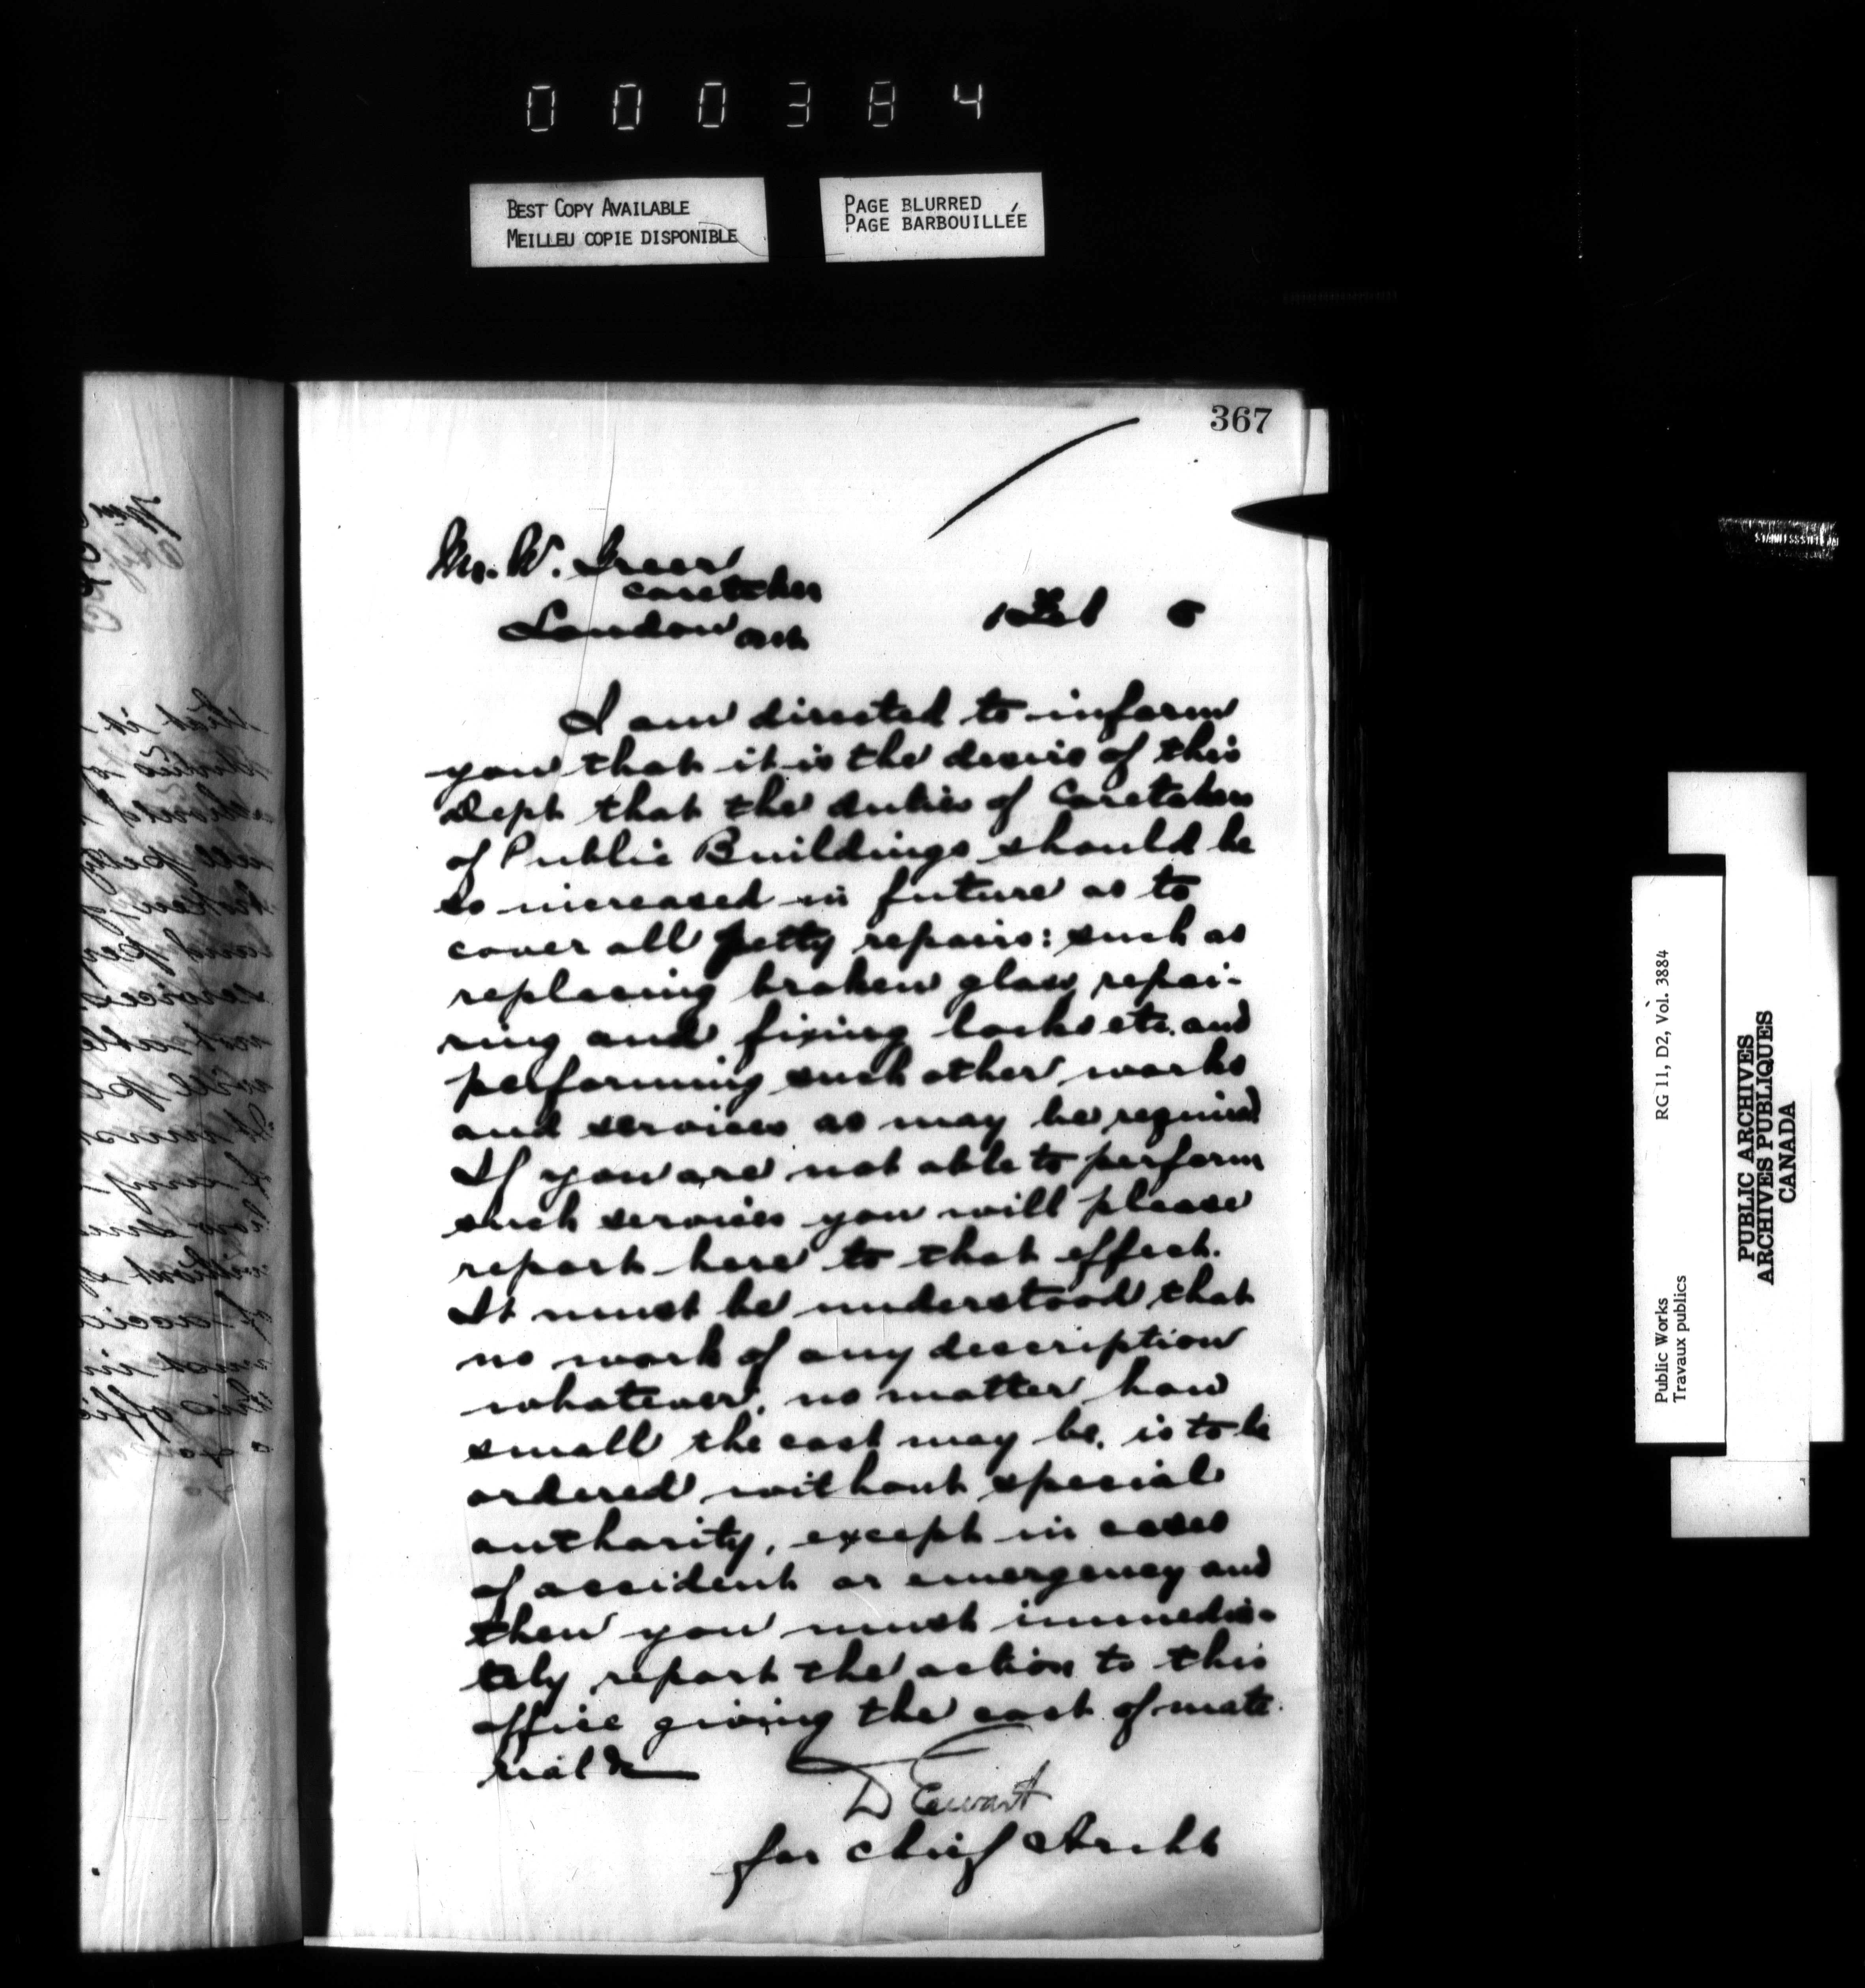 000384
BEST COPY AVAILABLE
MEILLEU COPIE DISPONIBLE
PAGE BLURRED
PAGE BARBOUILLÉE
367
Mr. W. Greer
caretaker
London Ont
1 Feb 6
I am directed to inform
you that it is the desire of this
Dept that the duties of Caretakers
of Public Buildings should be
so increased in future as to
cover all petty repairs: such as
replacing broken glass, repai-
ring and fixing locks etc. and
performing such other works
and services as may be required
If you are not able to perform
such services you will please
report here to that effect.
It must be understood that
no work of any description
whatever, no matter how
small the cost may be, is to be
ordered without special
authority, except in cases
of accident or emergency and
then you must immedia-
tely report the action to this
office giving the cost of mate-
rial &c
D Ewart
for Chief Archt
Public Works
Travaux publics
RG 11, D2, Vol. 3884
PUBLIC ARCHIVES
ARCHIVES PUBLIQUES
CANADA